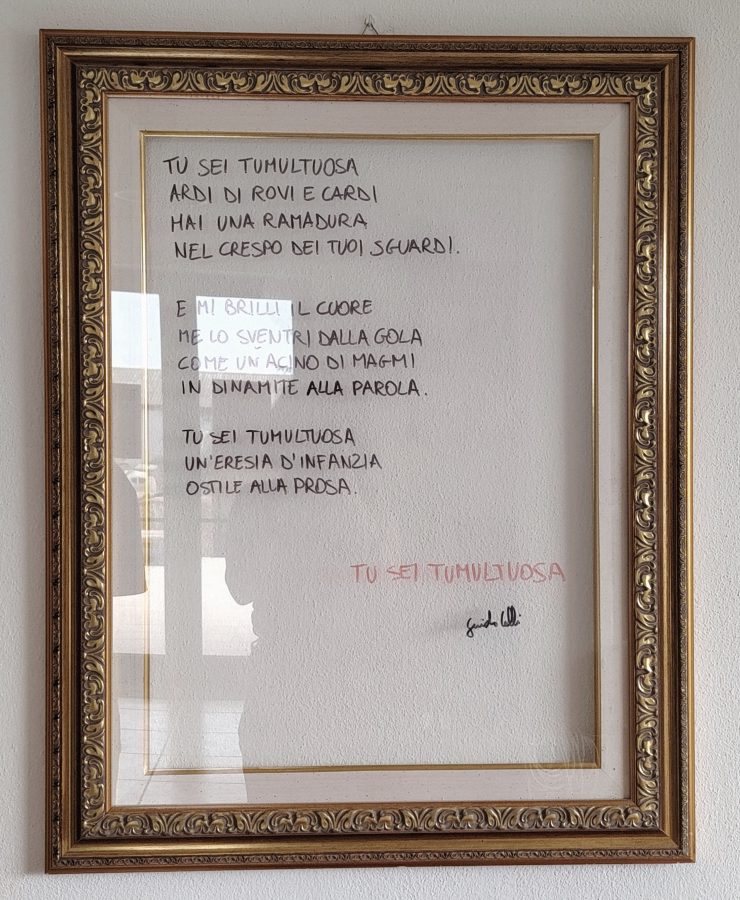 TU SEI TUMULTUOSA
ARDI DI ROVI E CARDI
HAI UNA RAMADURA
NEL CRESPO DEI TUOI SGUARDI.
E MI BRILLI IL CUORE
ME LO SVENTRI DALLA GOLA
COME UN ACINO DI MAGMI
IN DINAMITE ALLA PAROLA.
TU SEI TUMULTUOSA
UN'ERESIA D'INFANZIA
OSTILE ALLA PROSA.
TU SEI TUMULTUOSA